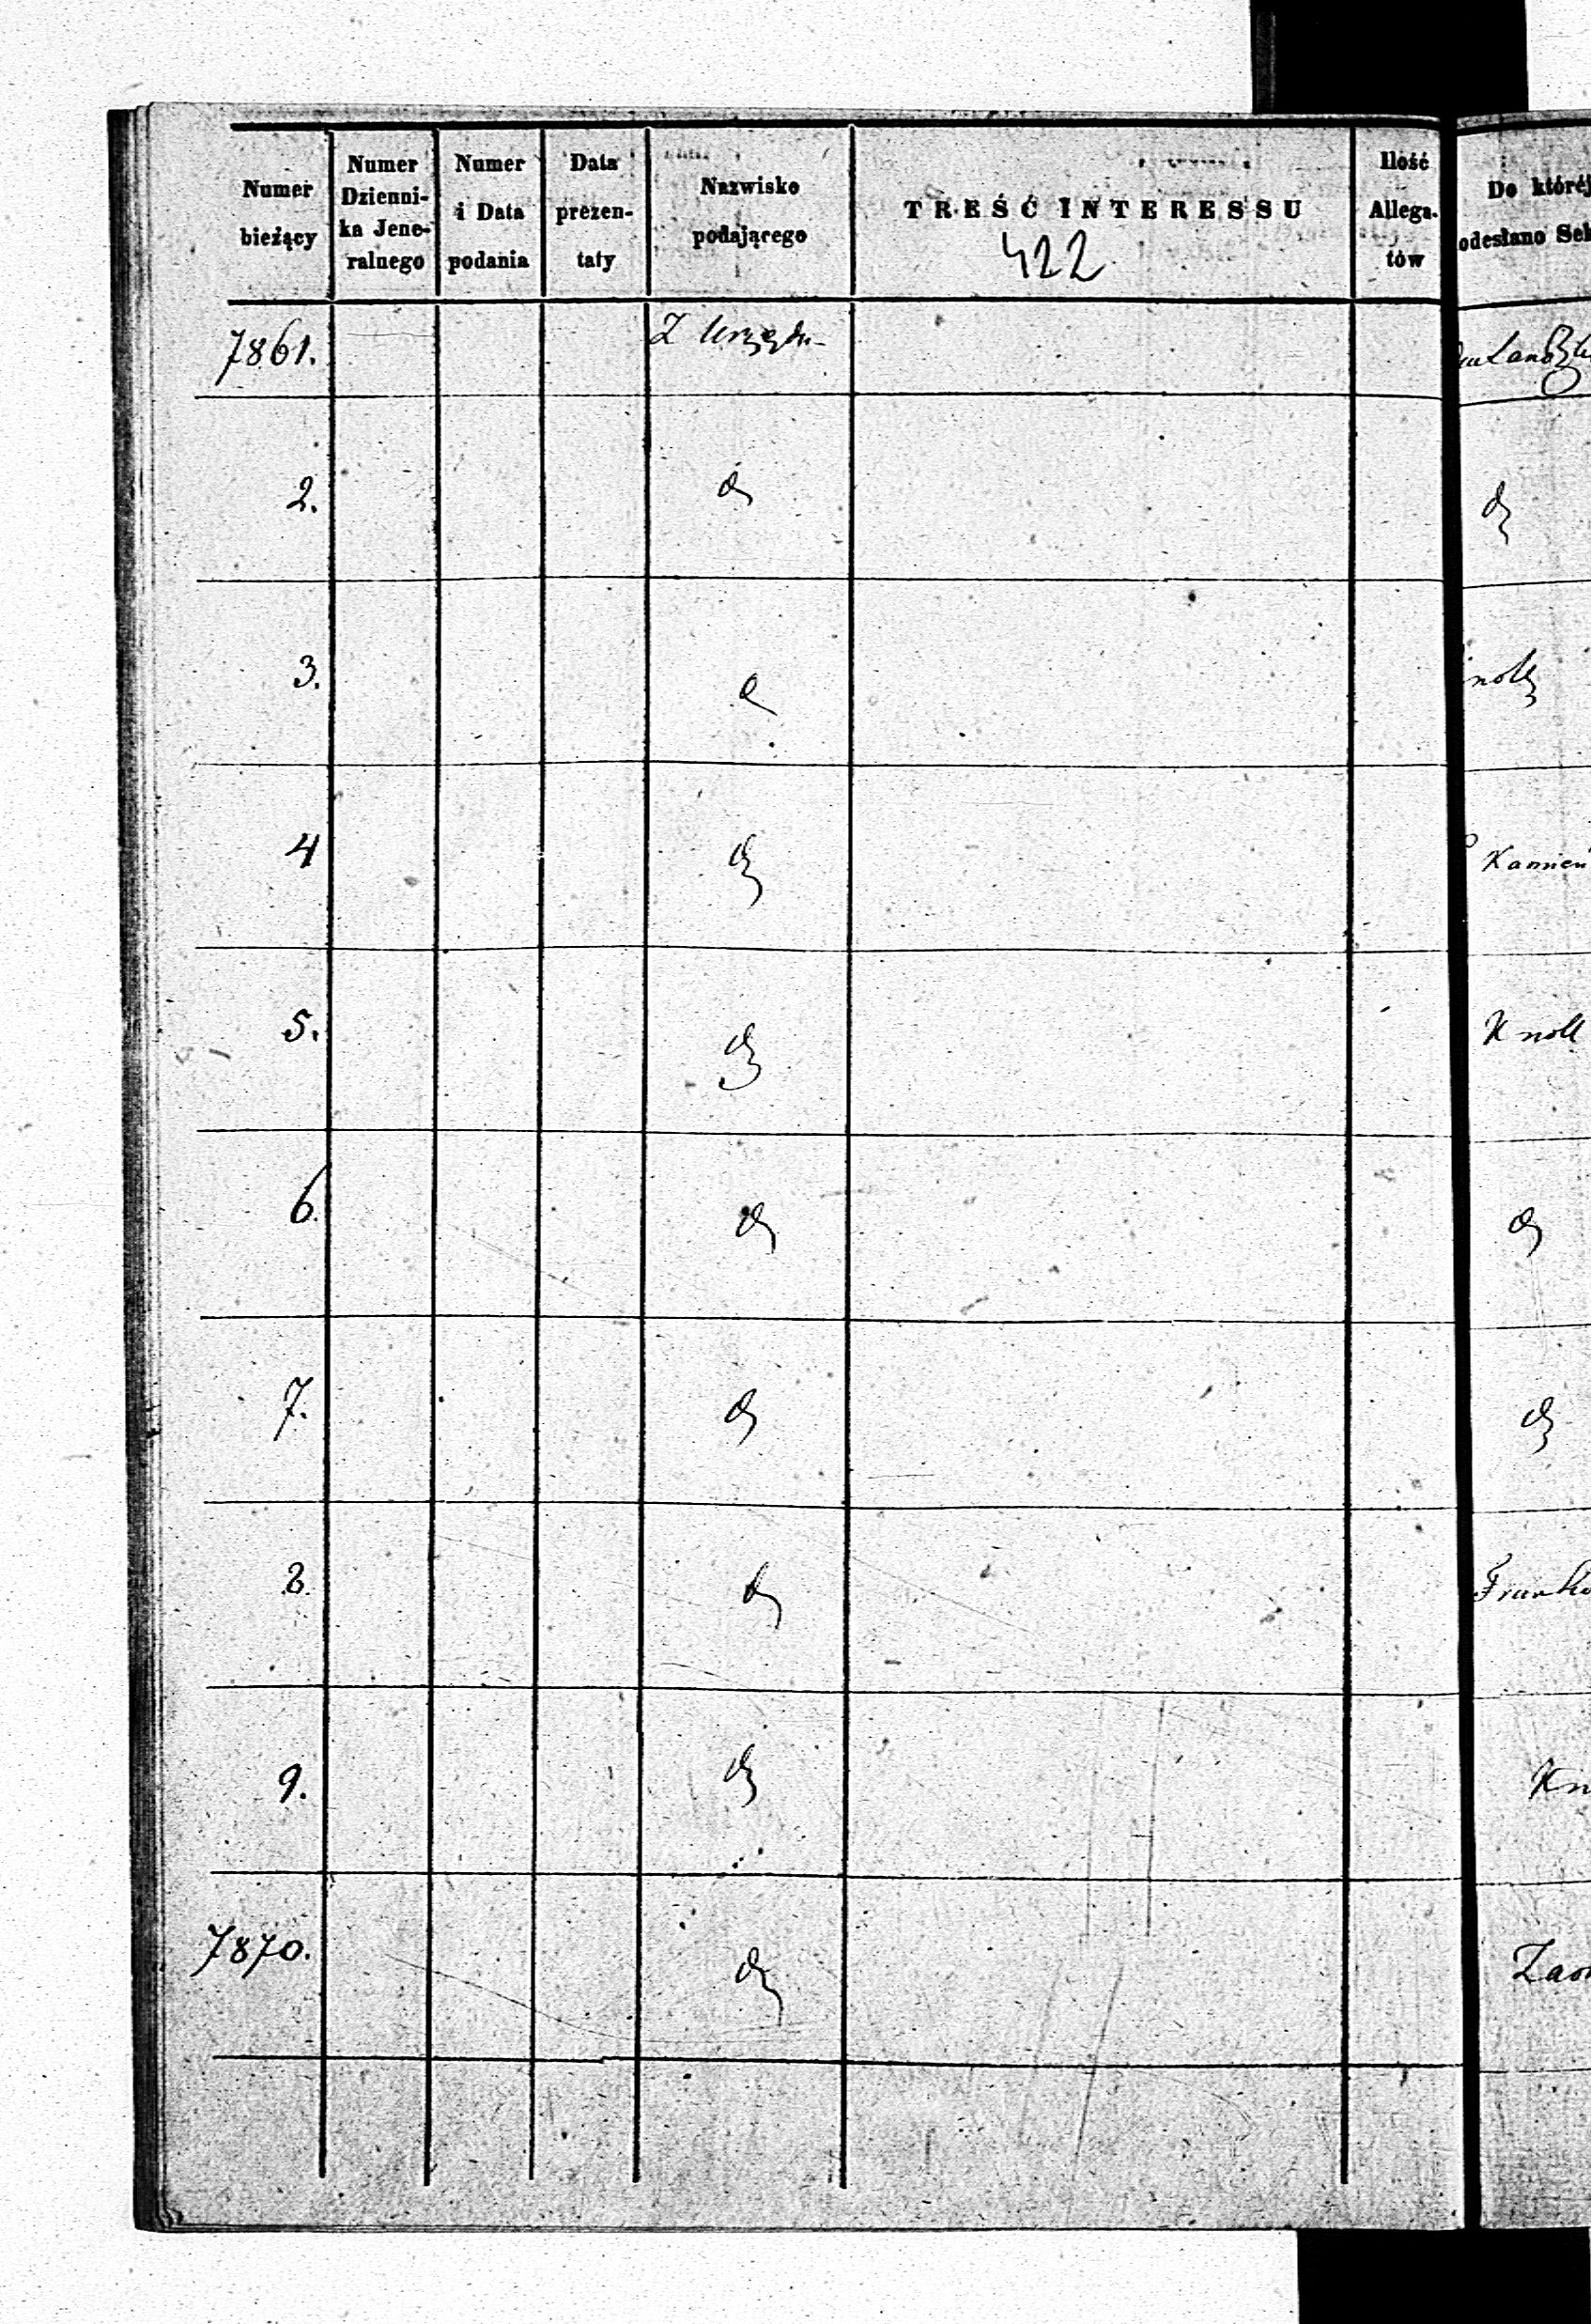 Numer bieżący
Numer Dzienni-ka Jene-ralnego
Numer i Data podania
Data prezen-taty
Nazwisko podającego
TREŚĆ INTERESSU
422
Ilość Allega-tów
Do któréj odesłano
7861. Z Urzędu
2. d
3. d
4 d
5. d Knoll
6. d d
7. d d
8. d
9. d
7870. d